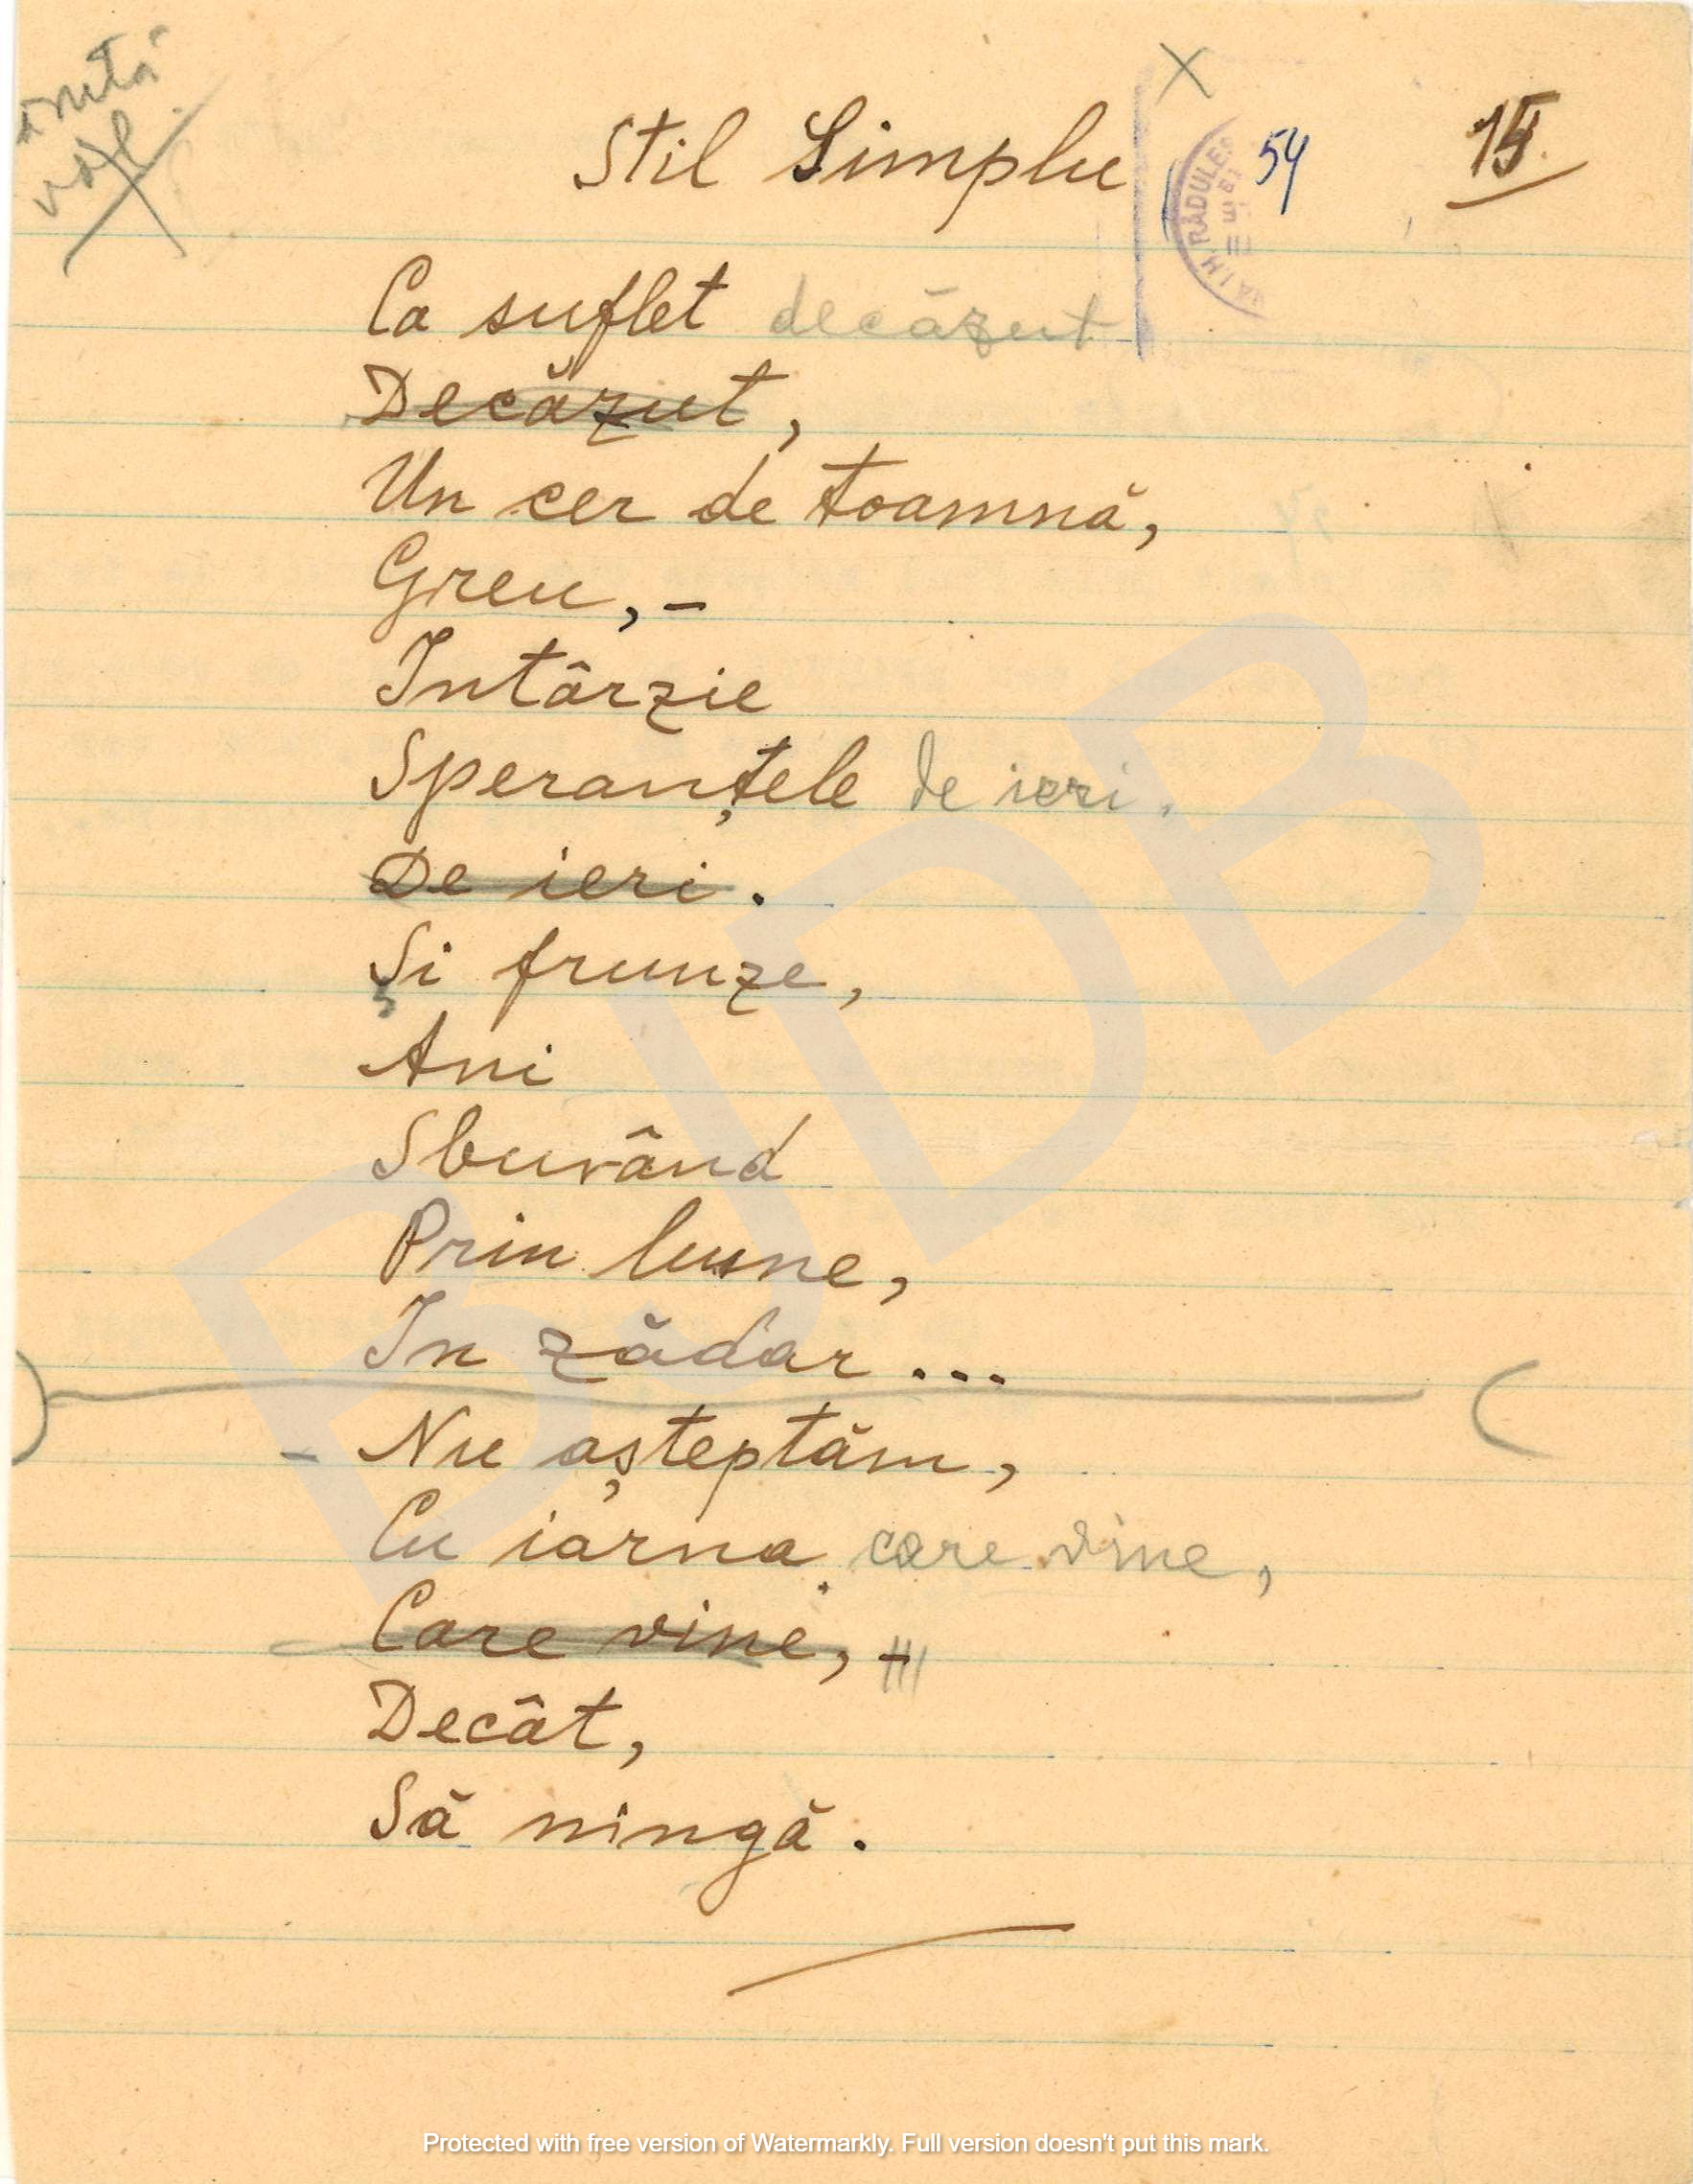 Stil Simplu
54
15
Ca suflet decăzut
Decăzut,
Un cer de toamnă,
Greu,-
Intârzie
Speranțele de ieri.
De ieri.
Și frunze,
Ani
Sburând
Prin lume,
In zădar...
- Nu așteptăm,
Cu iarna care vine,
Care vine,-
Decât,
Să ningă.
RĂDULES
BJDB
Protected with free version of Watermarkly. Full version doesn't put this mark.